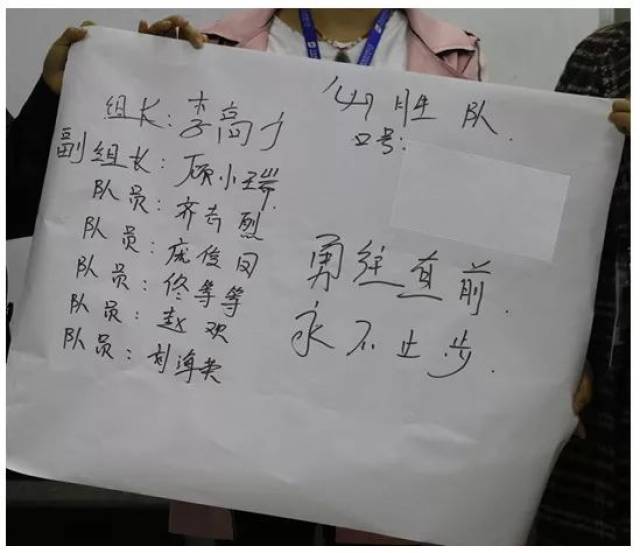 组长：李高才
副组长：顾小瑞
队员：齐志烈
队员：庞俊
队员：佟等等
队员：赵欢
队员：刘海
胜队.
口号：
勇往直前.
永不止步.